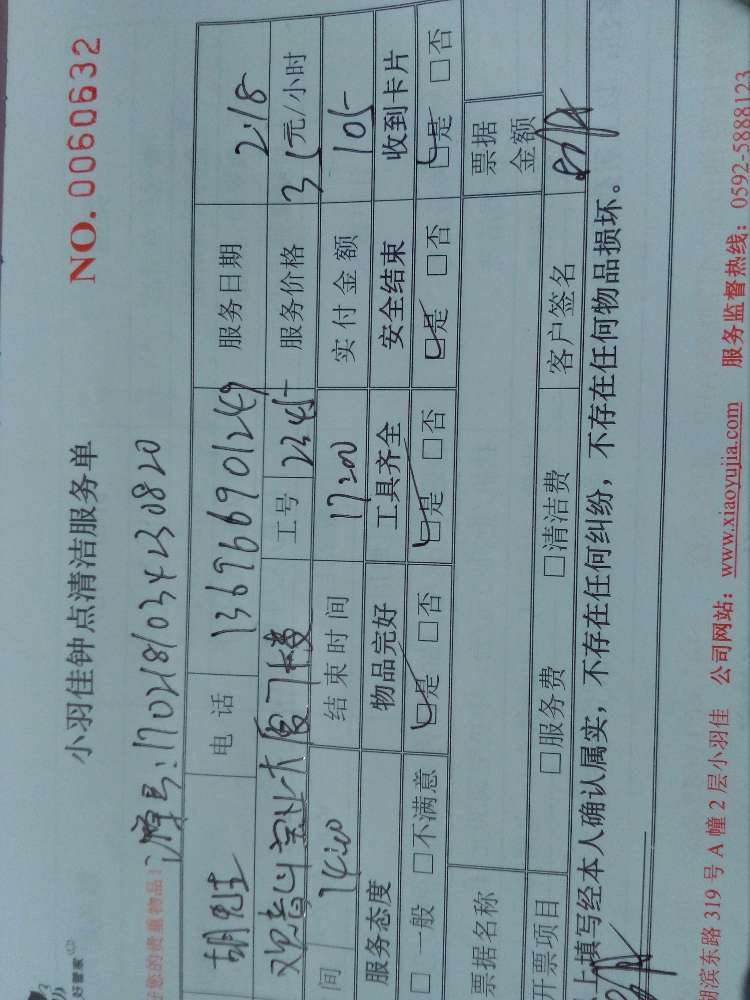 NO. 0060632
小羽佳钟点清洁服务单
好管家
您的贵重物品!
单号:170218103423 0820
胡先生 电 话 136966901249 服务日期 2.18
工号 2345 服务价格 35元/小时
间 14:00 结束时间 17:00 实付金额 105
服务态度 物品完好 工具齐全 安全结束 收到卡片
□ 一般 □不满意 □是 □否 □是 □否 □是 □否 □是 □否
票据名称 票据金额
开票项目 □服务费 □清洁费 客户签名
上填写经本人确认属实，不存在任何纠纷，不存在任何物品损坏。
湖滨东路 319 号 A 幢 2 层小羽佳 公司网站：www.xiaoyujia.com 服务监督热线：0592-5888123